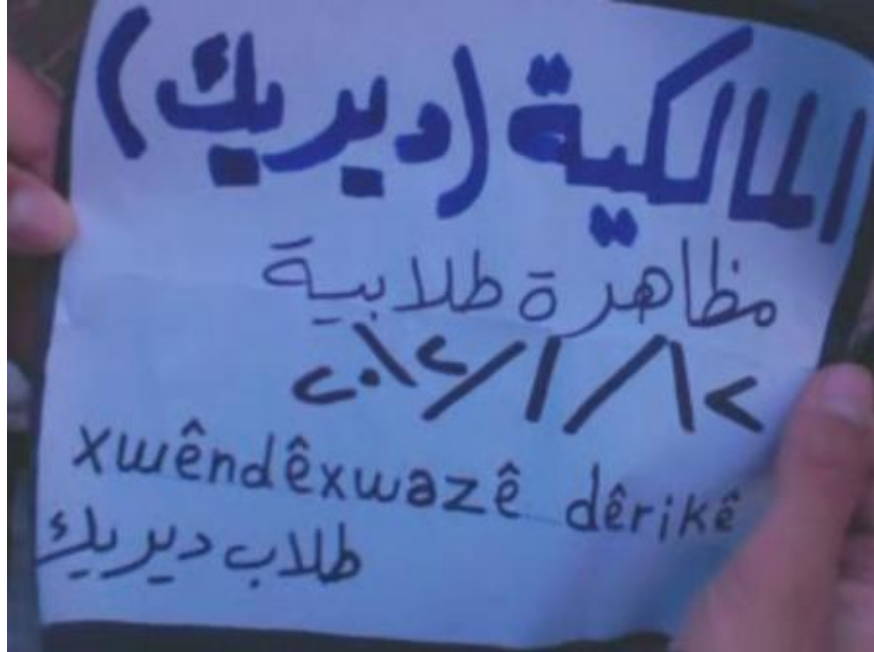 المالكية (ديريك)
مظاهرة طلابية
٢٠١٢/١/١٢
xwêndêxwazê dêrikê
طلاب ديريك